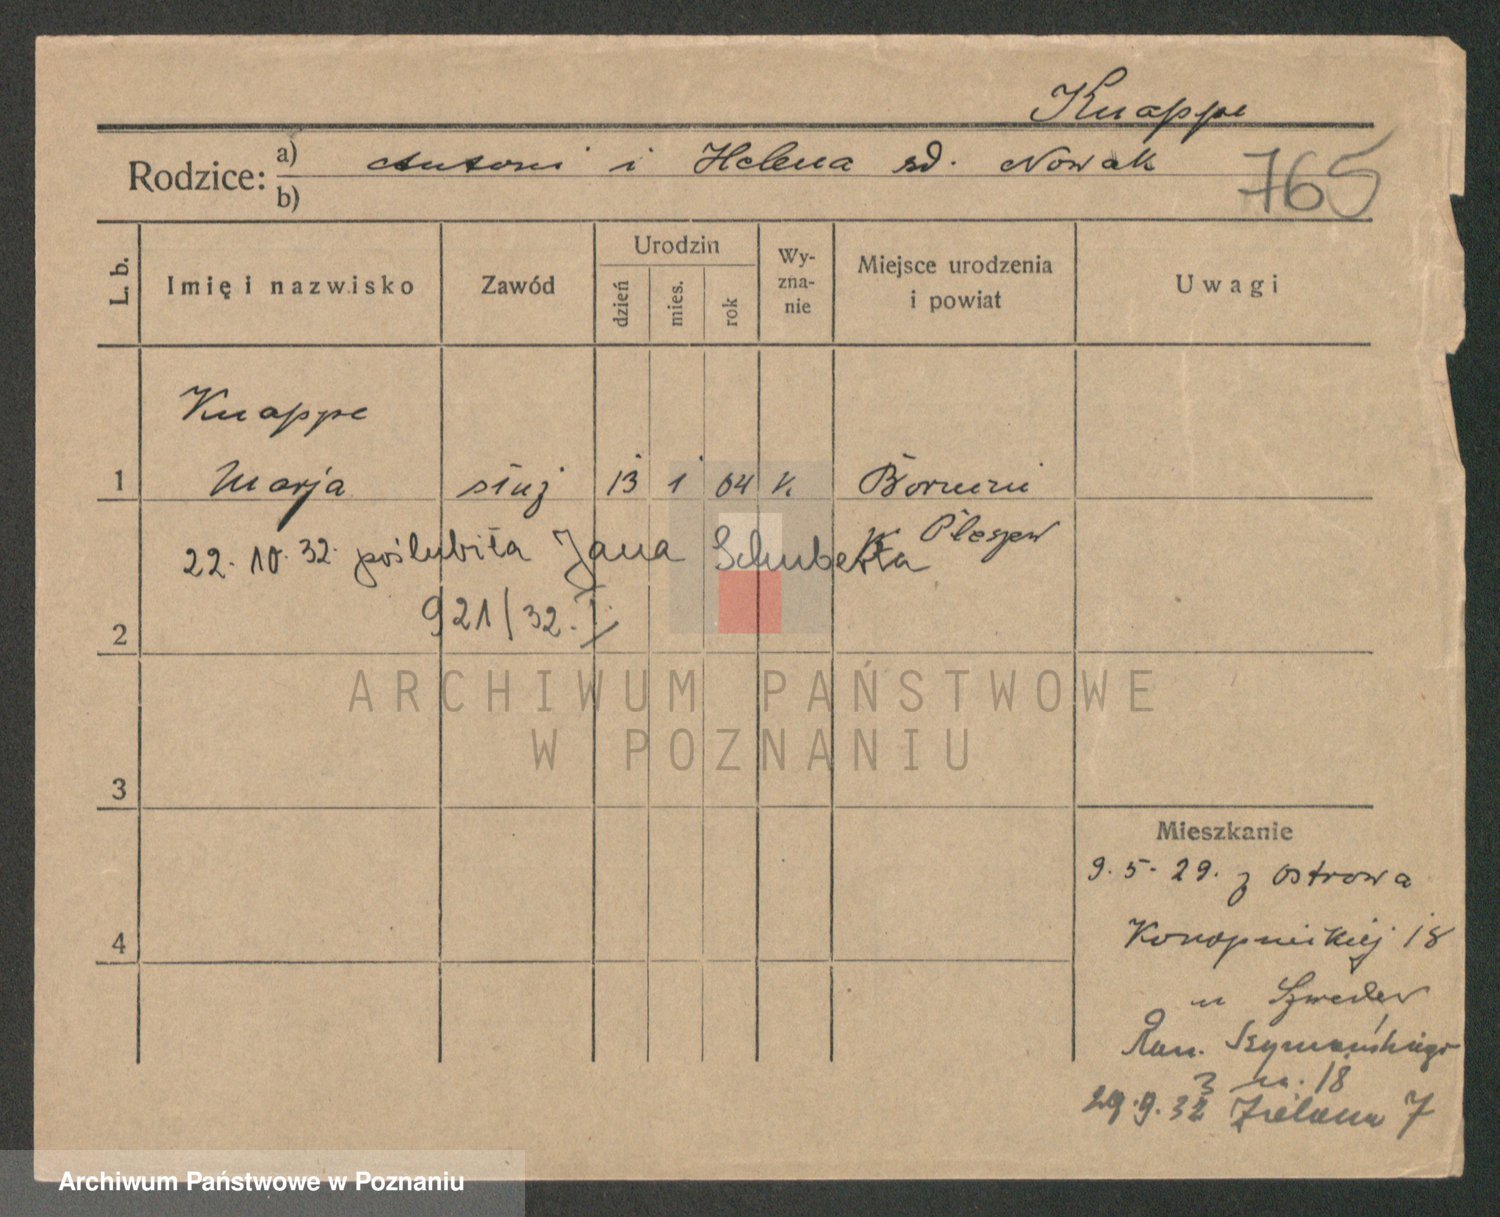 Knappe
Rodzice: a) Antoni i Helena zd. Nowak
b)
765
L. b.
Imię i nazwisko
Zawód
Urodzin
dzień
mies.
rok
Wy-
zna-
nie
Miejsce urodzenia
i powiat
Uwagi
Knappe
1 Marja służ 13 1 04 k.
p. Pleszew
22. 10. 32. poślubiła Jana Schuberta
921/32. I.
2
ARCHIWUM PAŃSTWOWE
W POZNANIU
3
Mieszkanie
9. 5. 29. z Ostrowa
4
Konopnickiej 18
u
Szymańskiego
3 m. 18
29. 9. 32 Zielona 7
Archiwum Państwowe w Poznaniu